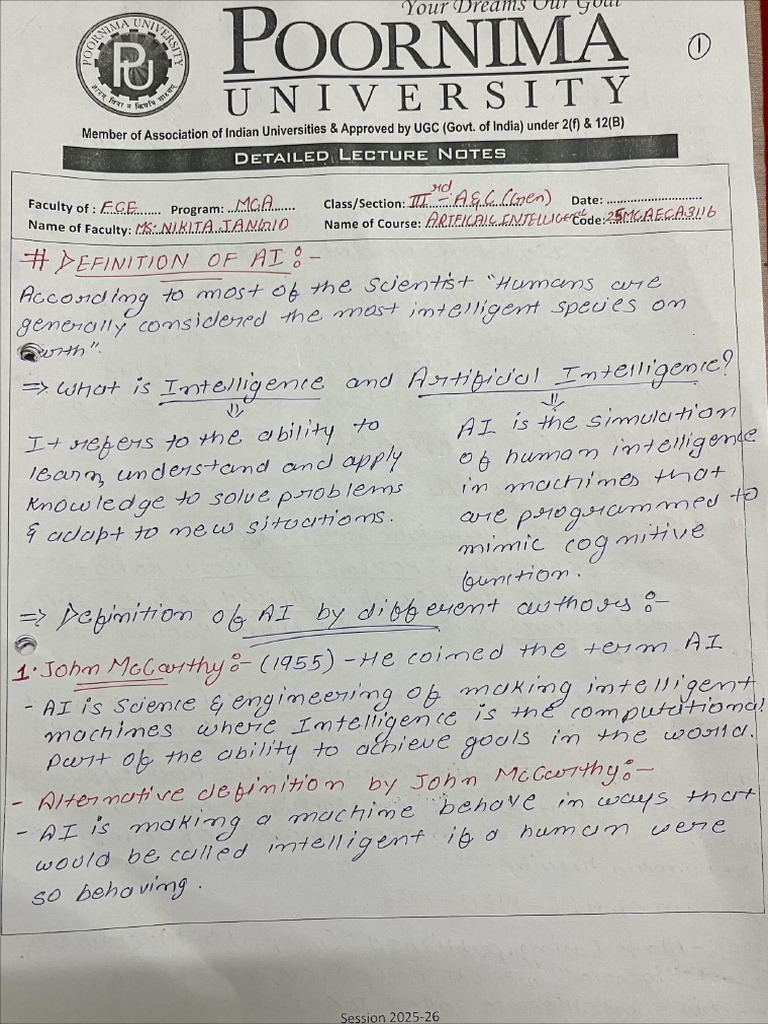 Your Dreams Our Goal
POORNIMA UNIVERSITY
PU
POORNIMA
UNIVERSITY
1
Member of Association of Indian Universities & Approved by UGC (Govt. of India) under 2(f) & 12(B)
DETAILED LECTURE NOTES
Faculty of : FCE Program: MCA Class/Section: IIIrd - A&C (Gen) Date:
Name of Faculty: MS. NIKITA JANGID Name of Course: Code: 25MCAECA3116
# DEFINITION OF AI :-
According to most of the scientist "Humans are
generally considered the most intelligent species on
=> What is Intelligence and Artificial Intelligence?
It refers to the ability to
learn, understand and apply
knowledge to solve problems
& adapt to new situations.
AI is the simulation
of human intelligence
in machines that
are programmed to
mimic cognitive
function.
=> Definition of AI by different authors :-
1. John McCarthy :- (1955) - He coined the term AI
- AI is science & engineering of making intelligent
machines where Intelligence is the computational
part of the ability to achieve goals in the world.
- Alternative definition by John McCarthy :-
- AI is making a machine behave in ways that
would be called intelligent if a human were
so behaving.
Session 2025-26